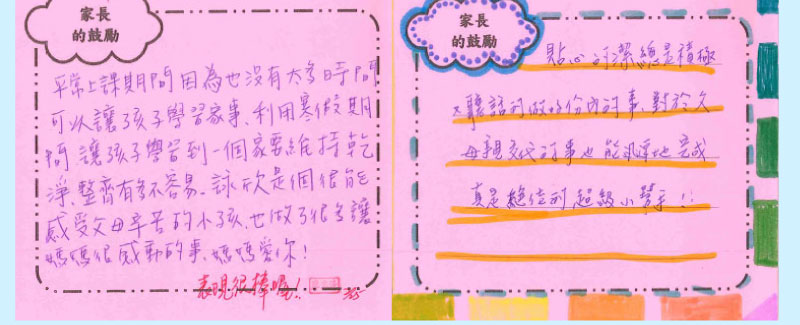 家長
的鼓勵
平常上課期間因為也沒有太多時間
可以讓孩子學習家事、利用寒假期
間讓孩子學習到一個家要維持乾
淨、整齊有多不容易、詠欣是個很能
感受父母辛苦的小孩、也做了很多讓
媽媽很感動的事、媽媽愛你！
表現很棒喔！
家長
的鼓勵
貼心的潔總是積極
又聽話的做好份內的事、對於父
母親交代的事也能迅速地完成
真是絕佳的超級小幫手！！